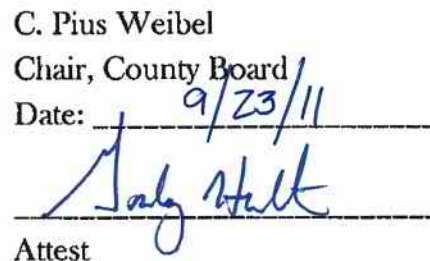 C. Pius Weibel
Chair, County Board
Date: 9/23/11
Attest